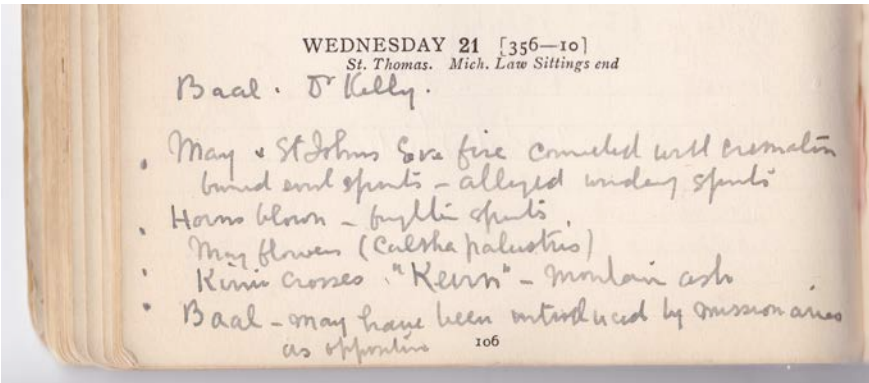 WEDNESDAY 21 [356—10]
St. Thomas. Mich. Law Sittings end
Baal. Dr Kelly.
. May & St Johns Eve fire connected with cremation
burned evil spirits – alleged spirits
. Horns blown – spirits.
May flowers (Caltha palustris)
. Crosses. "Keirn" – mountain ash
. Baal – may have been introduced by missionaries
as opposition
106